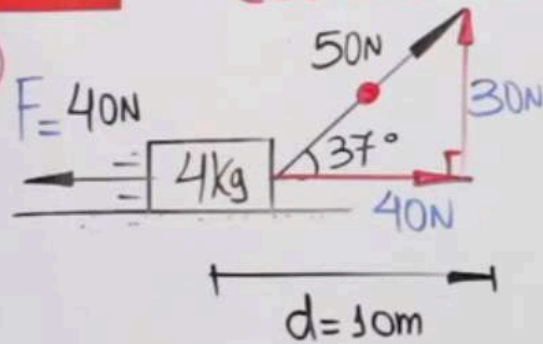 50N
30N
F=40N
4Kg
37°
40N
d=10m